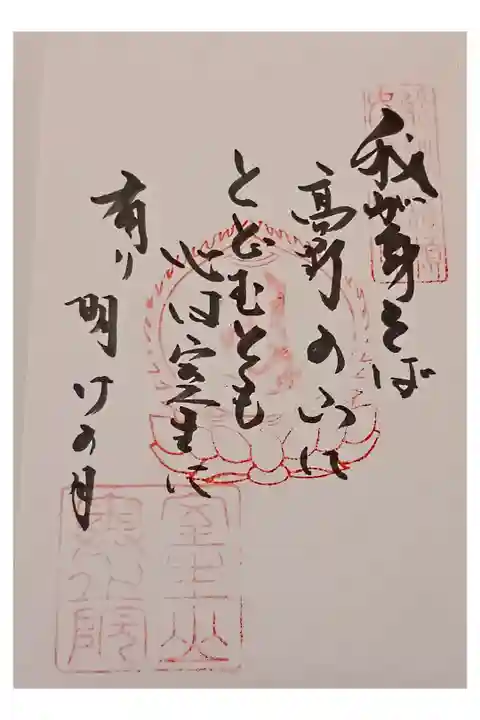 我が身をば
高野の山に
とどむとも
心は室生に
有り
明けの月
室生山